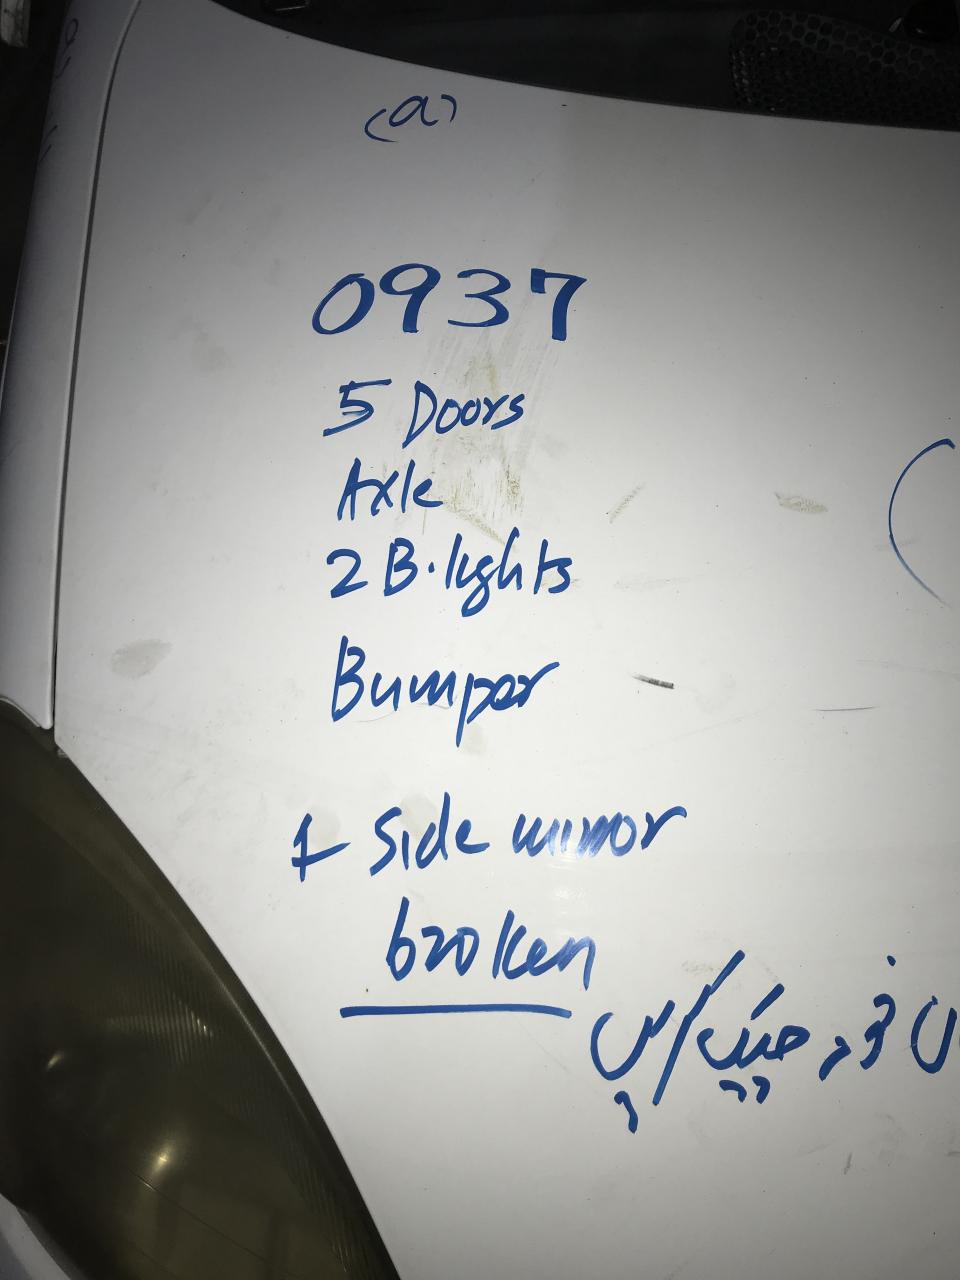 (a)
0937
5 Doors
Axle
2 B.lights
Bumper
1 side mirror
broken